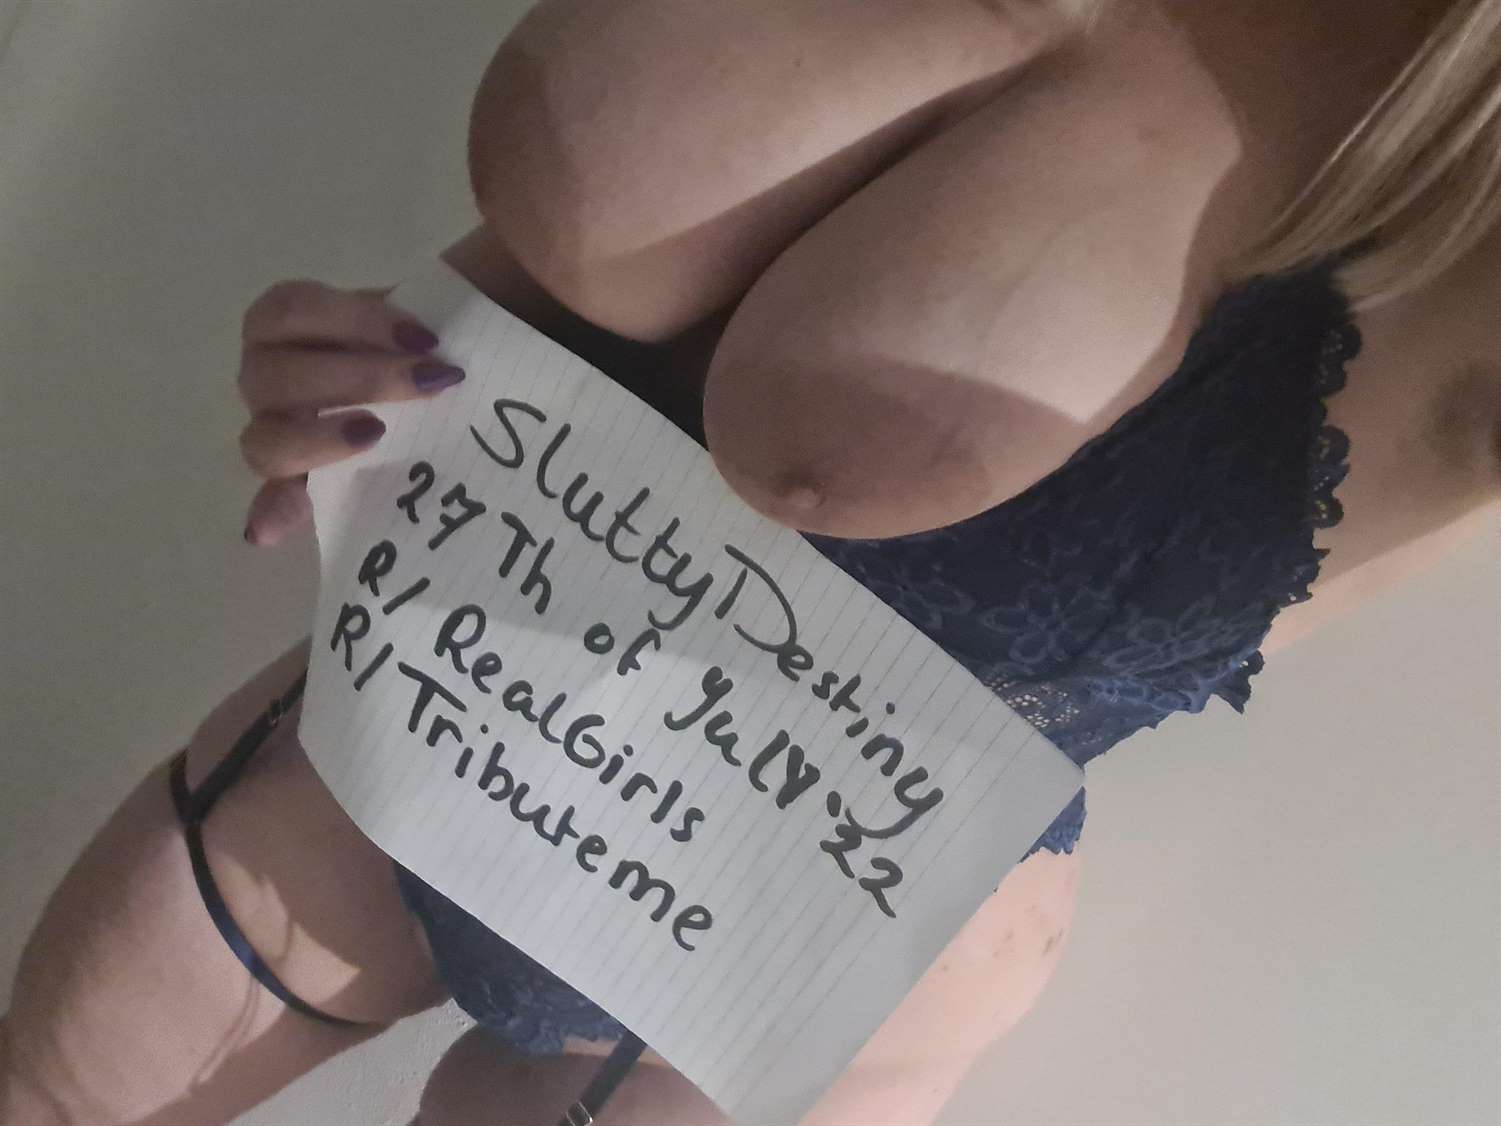 SluttyDestiny
27 Th of July.22
R/ RealGirls
R/Tributeme